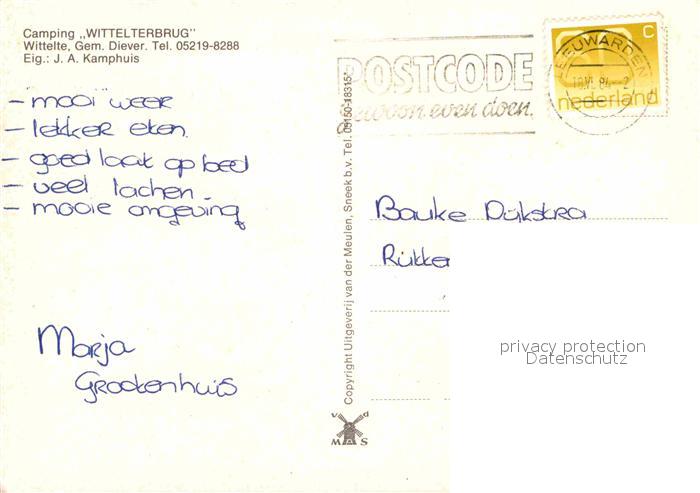 Camping „WITTELTERBRUG"
Wittelte, Gem. Diever. Tel. 05219-8288
Eig.: J. A. Kamphuis
- mooi weer
- lekker eten
- goed laat op bed
- veel lachen
- mooie omgeving
Marja
Grootenhuis
Copyright Uitgeverij van der Meulen, Sneek b.v. Tel. 05150-18315*
v d
MAS
POSTCODE
gewoon even doen.
LEEUWARDEN
VI. 84
C
nederland
Bauke Dijkstra
privacy protection
Datenschutz